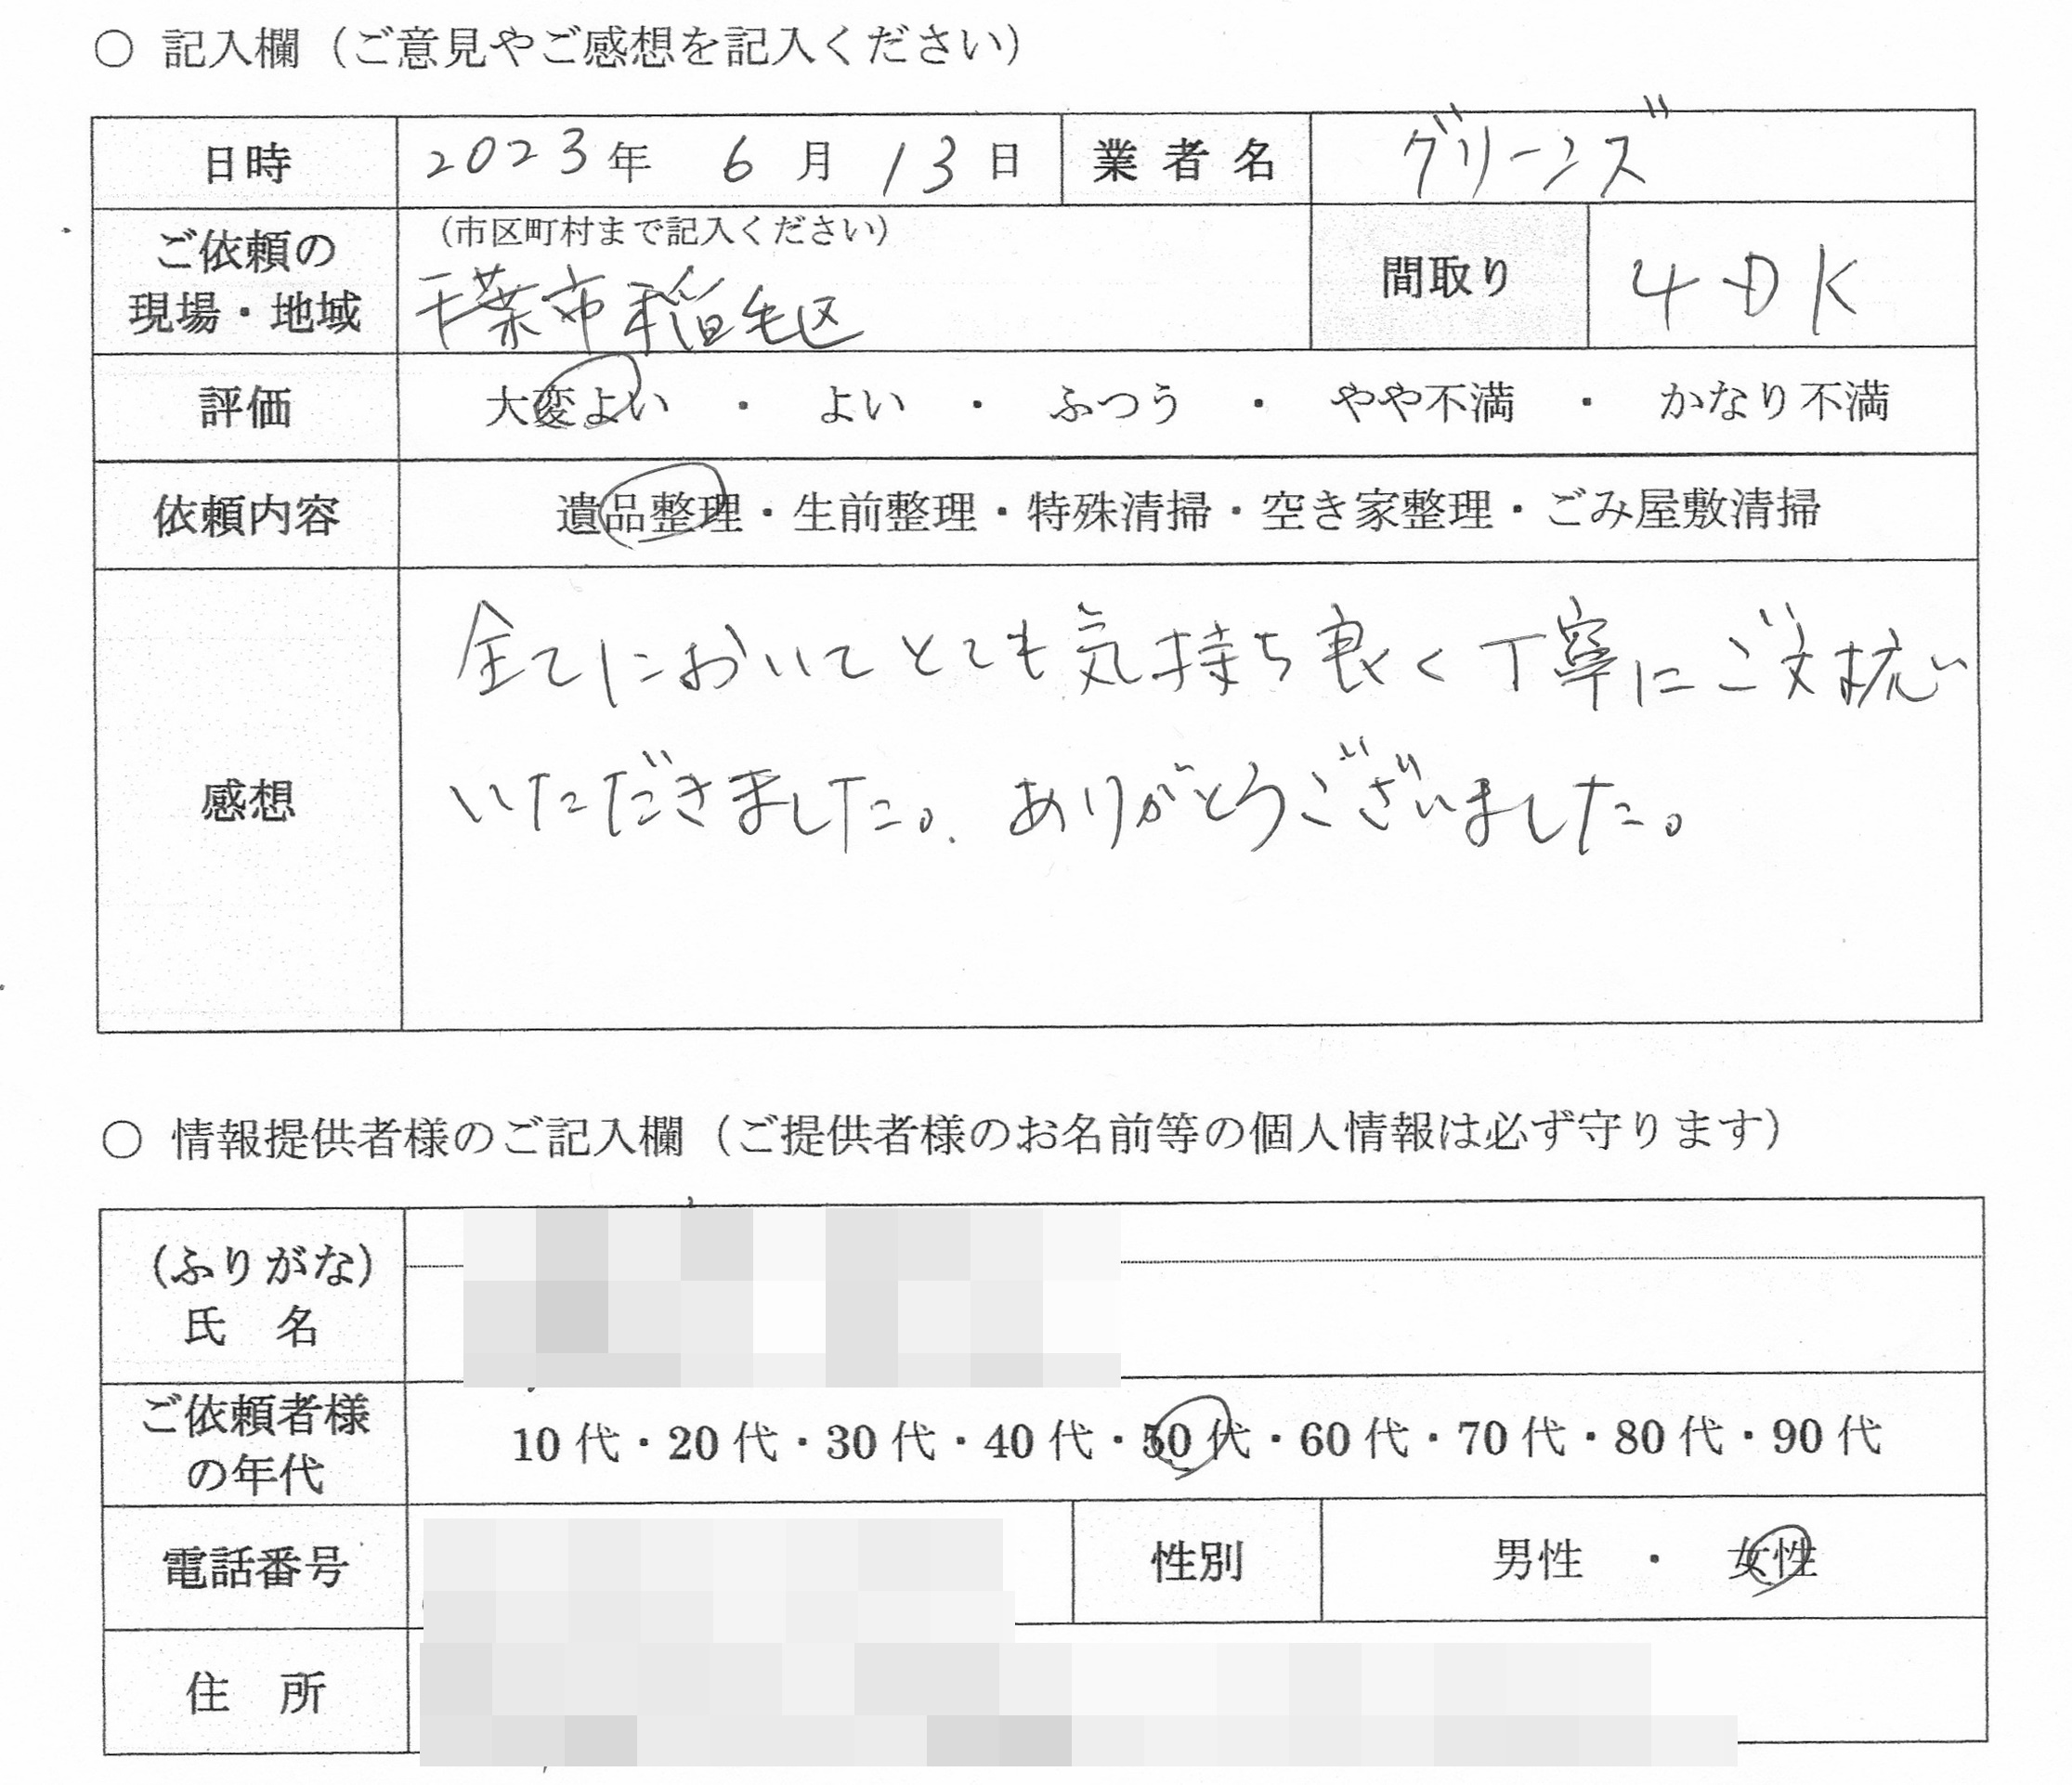 ○ 記入欄（ご意見やご感想を記入ください）
日時 2023年 6月 13日 業者名 グリーンズ
ご依頼の現場・地域 （市区町村まで記入ください） 間取り 4DK
千葉市稲毛区
評価 大変よい ・ よい ・ ふつう ・ やや不満 ・ かなり不満
依頼内容 遺品整理・生前整理・特殊清掃・空き家整理・ごみ屋敷清掃
感想
全てにおいてとても気持ち良く丁寧にご対応
いただきました。ありがとうございました。
○ 情報提供者様のご記入欄（ご提供者様のお名前等の個人情報は必ず守ります）
（ふりがな）
氏 名
ご依頼者様の年代 10代・20代・30代・40代・50代・60代・70代・80代・90代
電話番号 性別 男性 ・ 女性
住 所